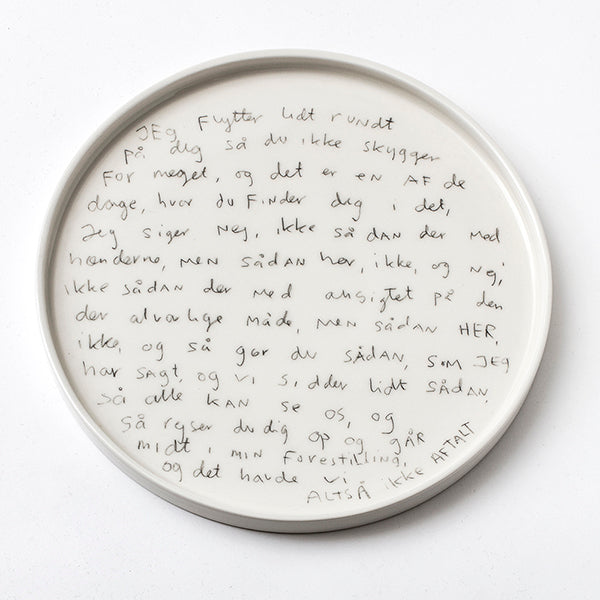 JEG Flytter lidt rundt
På dig så du ikke skygger
For meget, og det er en AF de
dage, hvor du Finder dig i det,
Jeg siger Nej, ikke så DAN der med
hænderne, MEN SÅDAN her, ikke, og Nej,
ikke SÅDAN der med ansigtet på den
der alvorlige måde, MEN SÅDAN HER,
ikke, og så gør du SÅDAN, SOM JEG
har SAGT, og vi sidder lidt SÅDAN,
SÅ alle KAN se os, og
så rejser du dig op og GÅR
midt i MIN Forestilling,
og det havde vi
ALTSÅ ikke AFTALT